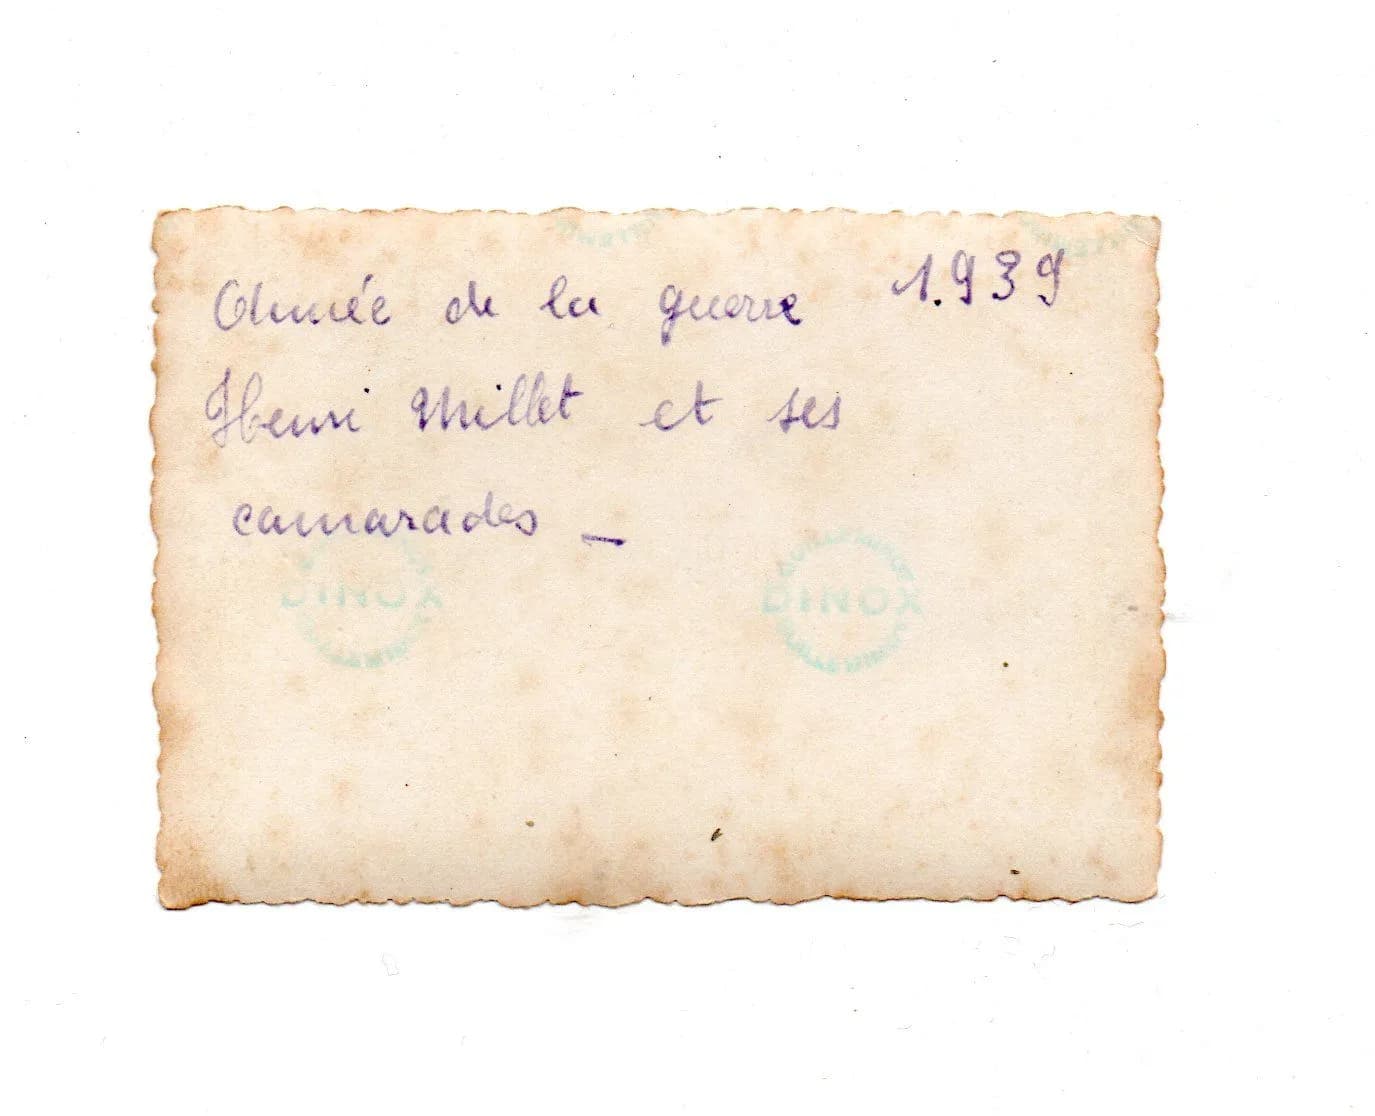 Année de la guerre 1.939
Henri Millet et ses
camarades _
DINOX
DINOX